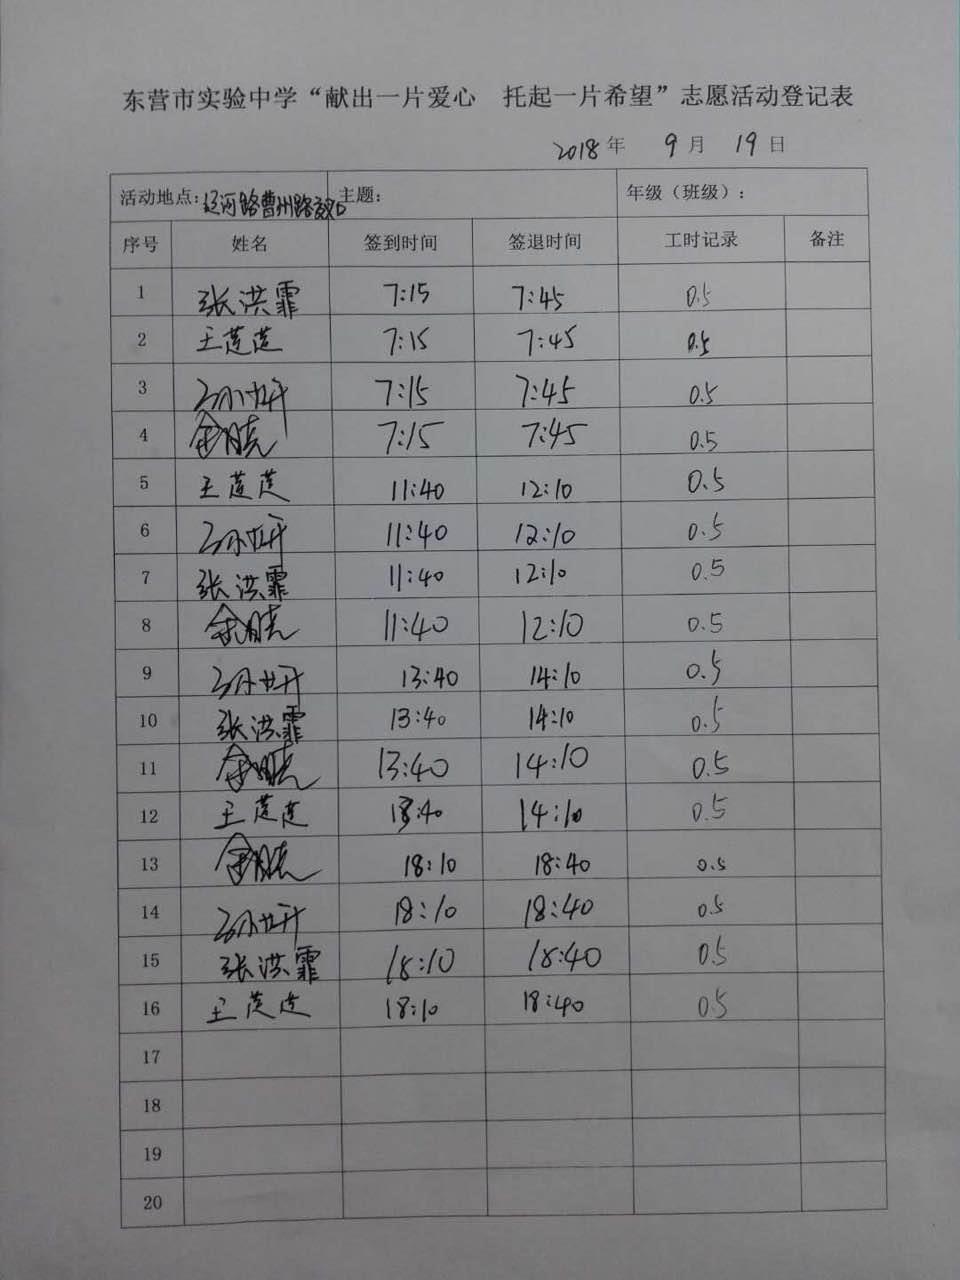 东营市实验中学“献出一片爱心 托起一片希望”志愿活动登记表
2018年 9月 19日
活动地点:辽河路曹州路 主题: 年级（班级）:
序号 姓名 签到时间 签退时间 工时记录 备注
1 张洪霏 7:15 7:45 0.5
2 王莲莲 7:15 7:45 0.5
3 7:15 7:45 0.5
4 7:15 7:45 0.5
5 王莲莲 11:40 12:10 0.5
6 11:40 12:10 0.5
7 张洪霏 11:40 12:10 0.5
8 11:40 12:10 0.5
9 13:40 14:10 0.5
10 张洪霏 13:40 14:10 0.5
11 13:40 14:10 0.5
12 王莲莲 13:40 14:10 0.5
13 18:10 18:40 0.5
14 18:10 18:40 0.5
15 张洪霏 18:10 18:40 0.5
16 王莲莲 18:10 18:40 0.5
17
18
19
20